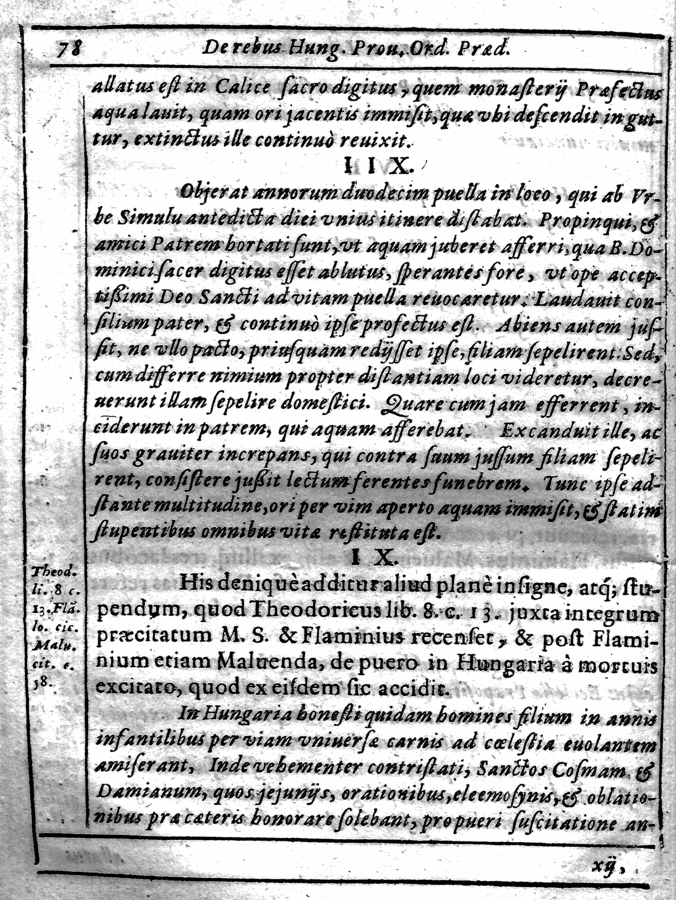 78 De rebus Hung. Prou. Ord. Præd.
allatus eſt in Calice ſacro digitus, quem monaſterij Præfectus
aqua lauit, quam ori jacentis immiſit, quæ vbi deſcendit in gut-
tur, extinctus ille continuò reuixit.
I I X.
Objerat annorum duodecim puella in loco, qui ab Vr-
be Simulu antedicta diei vnius itinere diſtabat. Propinqui, &
amici Patrem hortati ſunt, vt aquam juberet afferri, qua B. Do-
minici ſacer digitus eſſet ablutus, ſperantes fore, vt ope accep-
tißimi Deo Sancti ad vitam puella reuocaretur. Laudauit con-
ſilium pater, & continuò ipſe profectus eſt. Abiens autem juſ-
ſit, ne vllo pacto, priuſquam redijſſet ipſe, filiam ſepelirent. Sed,
cum differre nimium propter diſtantiam loci videretur, decre-
uerunt illam ſepelire domeſtici. Quare cum jam efferrent, in-
ciderunt in patrem, qui aquam afferebat. Excanduit ille, ac
ſuos grauiter increpans, qui contra ſuum juſſum filiam ſepeli-
rent, conſiſtere jußit lectum ferentes funebrem. Tunc ipſe ad-
ſtante multitudine, ori per vim aperto aquam immiſit, & ſtatim
ſtupentibus omnibus vitæ reſtituta eſt.
I X.
His deniquè additur aliud planè inſigne, atq́; ſtu-
pendum, quod Theodoricus lib. 8. c. 13. juxta integrum
præcitatum M. S. & Flaminius recenſet, & poſt Flami-
nium etiam Maluenda, de puero in Hungaria à mortuis
excitato, quod ex eiſdem ſic accidit.
Theod.
li. 8 c.
13. Fla-
lo. cit.
Malu.
cit. c.
38.
In Hungaria honeſti quidam homines filium in annis
infantilibus per viam vniuerſæ carnis ad cœleſtia euolantem
amiſerant, Inde vehementer contriſtati, Sanctos Coſmam &
Damianum, quos jejunijs, orationibus, eleemoſynis, & oblatio-
nibus præ cæteris honorare ſolebant, pro pueri ſuſcitatione an-
xij,